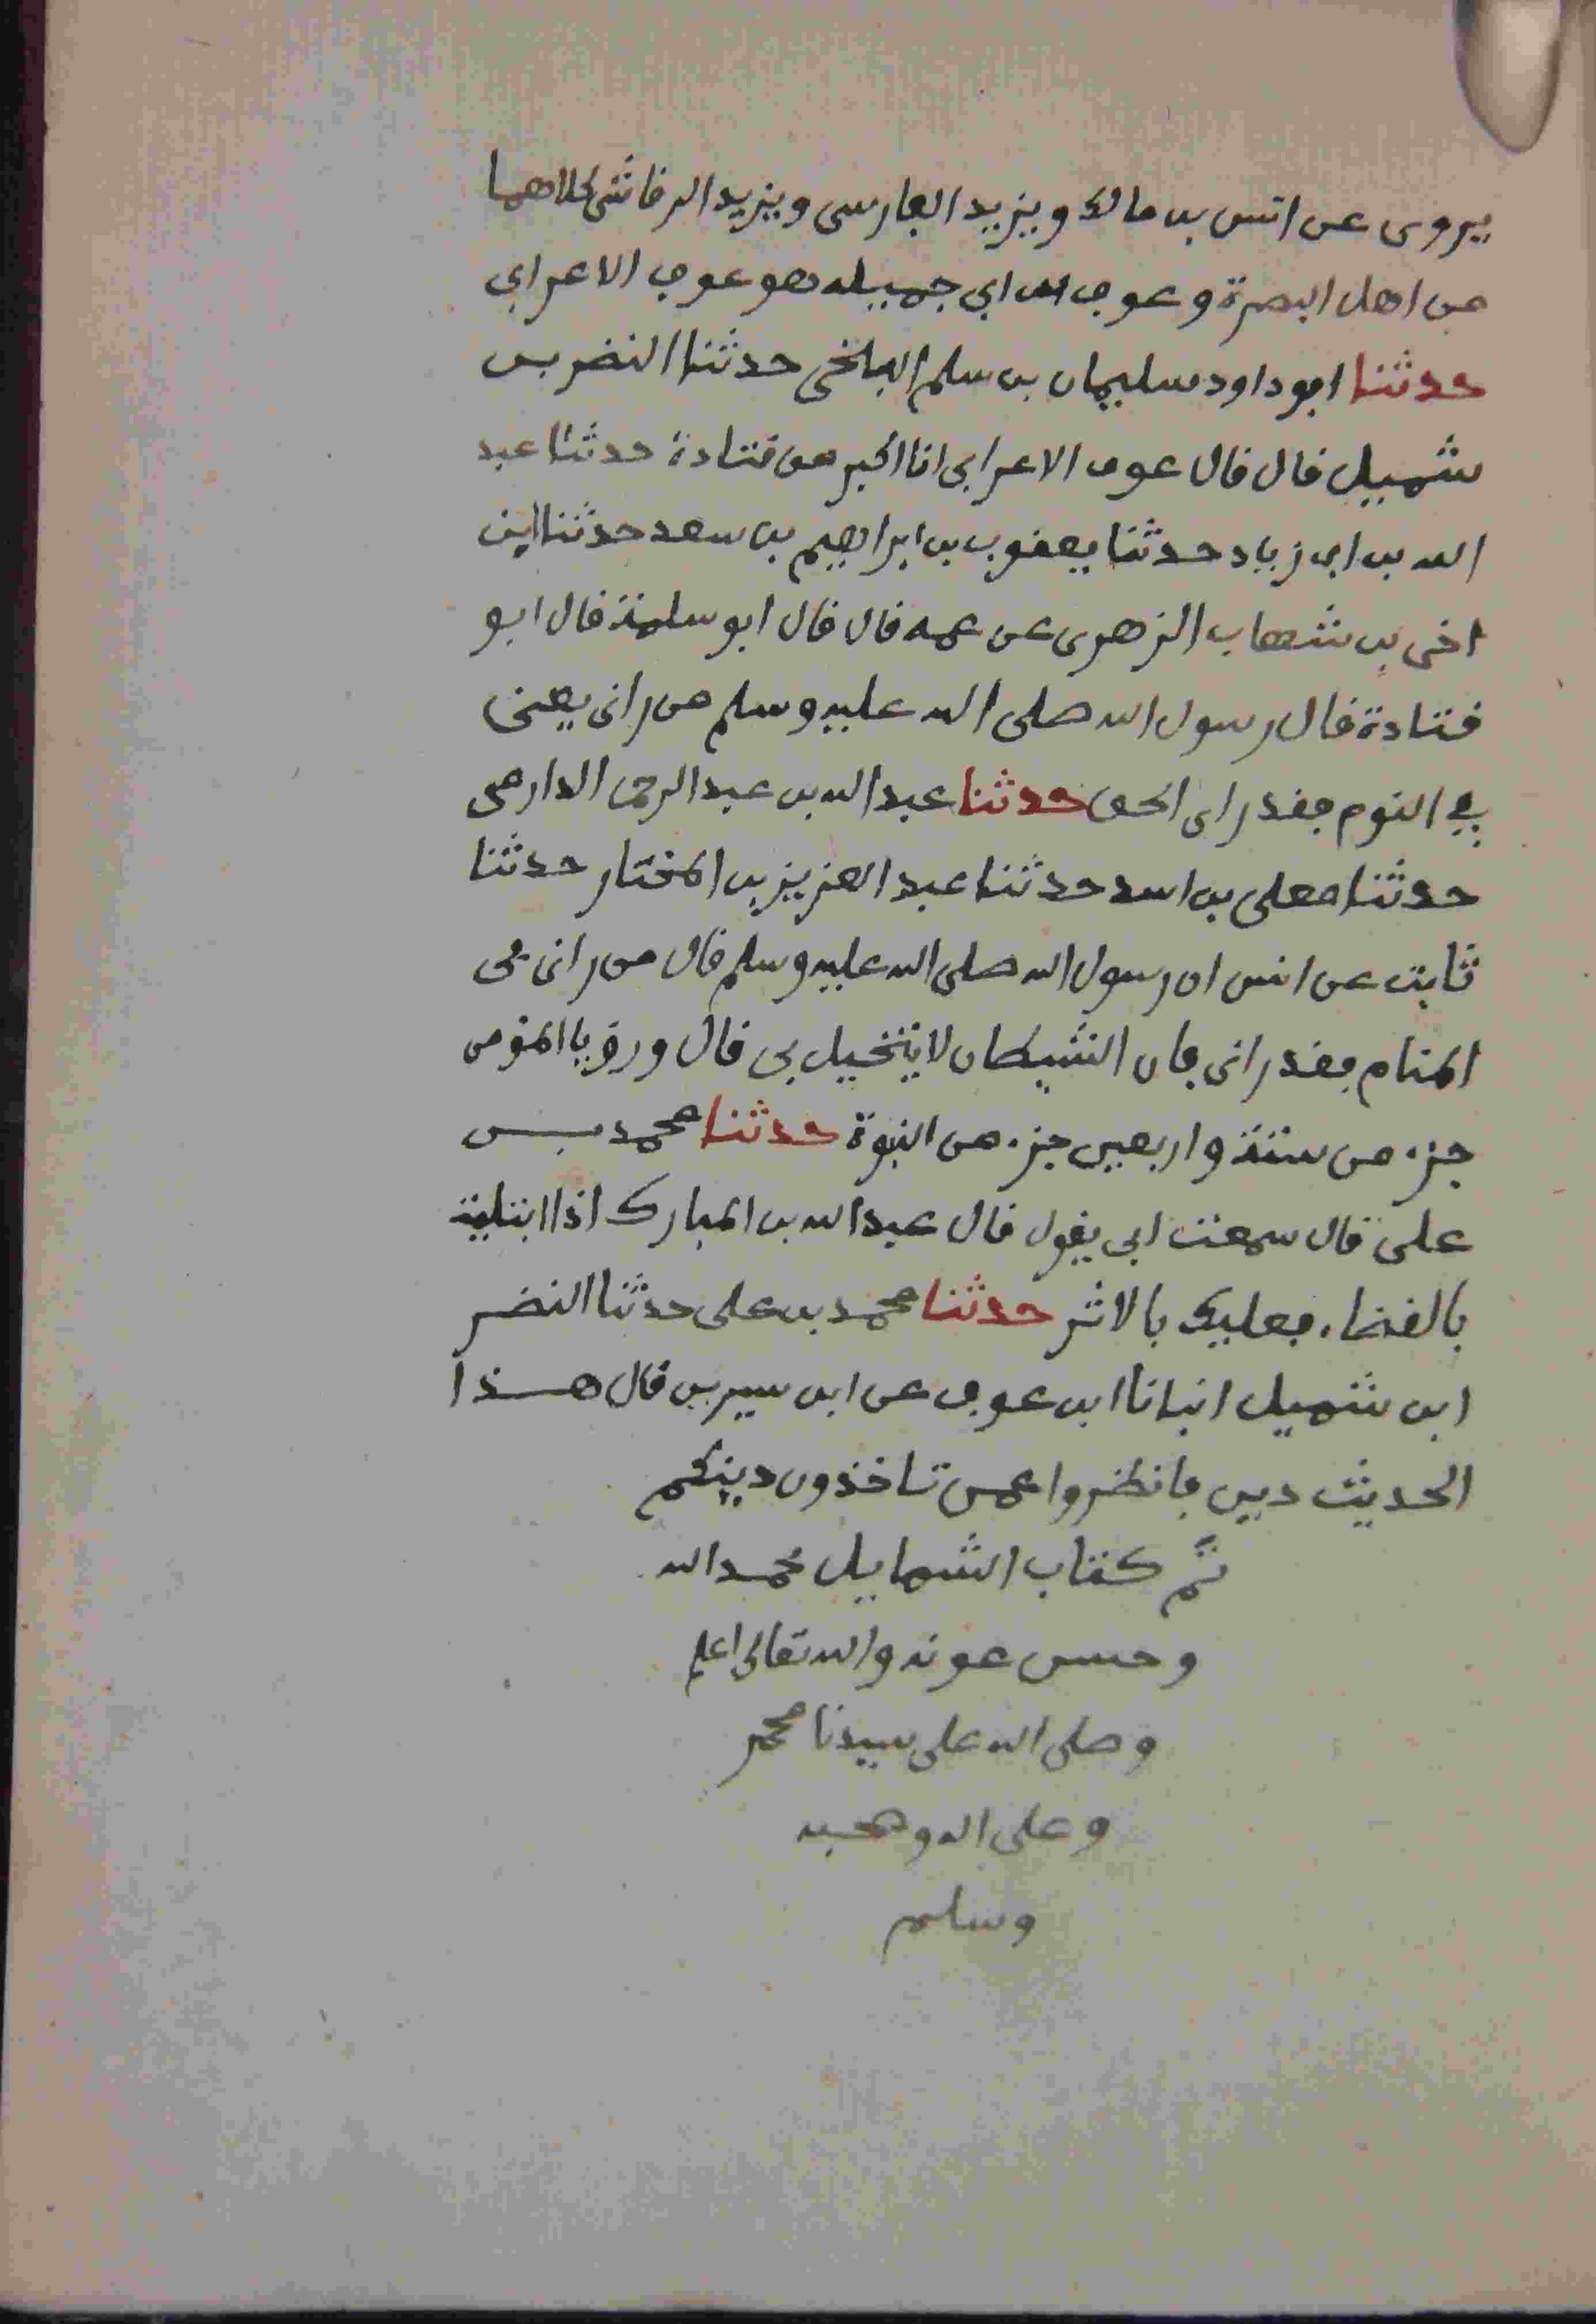 يروى عن انس بن مالك ويزيد الفارسى ويزيد الرقاشى كلاهما
من اهل البصرة وعوف بن ابى جميله هو عوف الاعرابى
حدثنا ابو داود سليمان بن سلم البلخى حدثنا النضر بن
شميل قال قال عوف الاعرابى انا اكبر من قتادة حدثنا عبد
الله بن ابى زياد حدثنا يعقوب بن ابراهيم بن سعد حدثنا ابن
اخى بن شهاب الزهرى عن عمه قال قال ابو سلمة قال ابو
قتادة قال رسول الله صلى الله عليه وسلم من رانى يعنى
في النوم فقد راى الحق حدثنا عبد الله بن عبد الرحمن الدارمى
حدثنا معلى بن اسد حدثنا عبد العزيز بن المختار حدثنا
ثابت عن انس ان رسول الله صلى الله عليه وسلم قال من رانى فى
المنام فقد رانى فان الشيطان لا يتخيل بى قال ورؤيا المومن
جزء من ستة واربعين جزء من النبوة حدثنا محمد بن
على قال سمعت ابى يقول قال عبد الله بن المبارك اذا ابتليت
بالقضاء فعليك بالاثر حدثنا محمد بن على حدثنا النضر
ابن شميل انبانا ابن عوف عن ابن سيرين قال هذا
الحديث دين فانظروا عمن تاخذون دينكم
تم كتاب الشمايل بحمد الله
وحسن عونه والله تعالى اعلم
وصلى الله على سيدنا محمد
وعلى اله وصحبه
وسلم